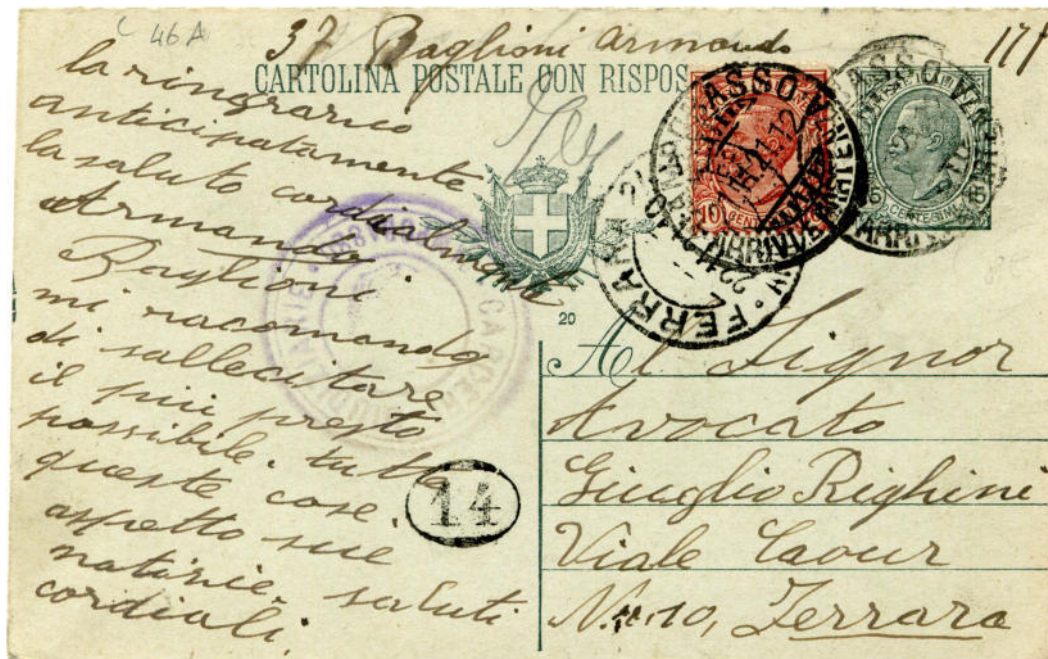 C 46A
37 Baglioni Armando
177
CARTOLINA POSTALE CON RISPOS
la ringrazio
anticipatamente
la saluto cordialmente
Armando
Baglioni.
mi racomando
di sallecitare
il piu presto
possibile. tutte
queste cose.
aspetto sue
notizie. saluti
cordiali.
10 CENTESIMI
CENTESIMI
FERRARA
CARCERI GIUDIZIARIE
20
14
Al Signor
Avocato
Guaglio Righini
Viale Cavour
N. 10, Ferrara